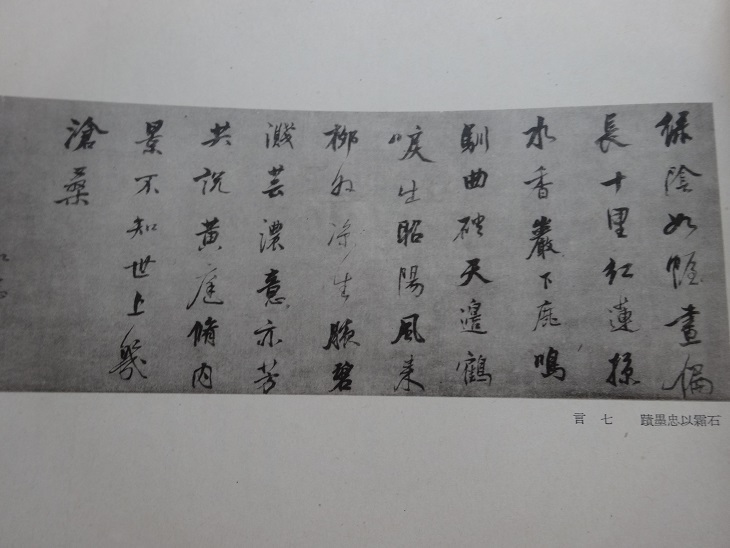 綠陰如幄晝偏
長十里紅蓮掠
水香巖下鹿鳴
馴曲磴天邊鶴
唳出昭陽風來
柳外涼生腋碧
濺芸濃意亦芳
共說黃庭脩內
景不知世上幾
滄桑
石霜以忠墨蹟 七言